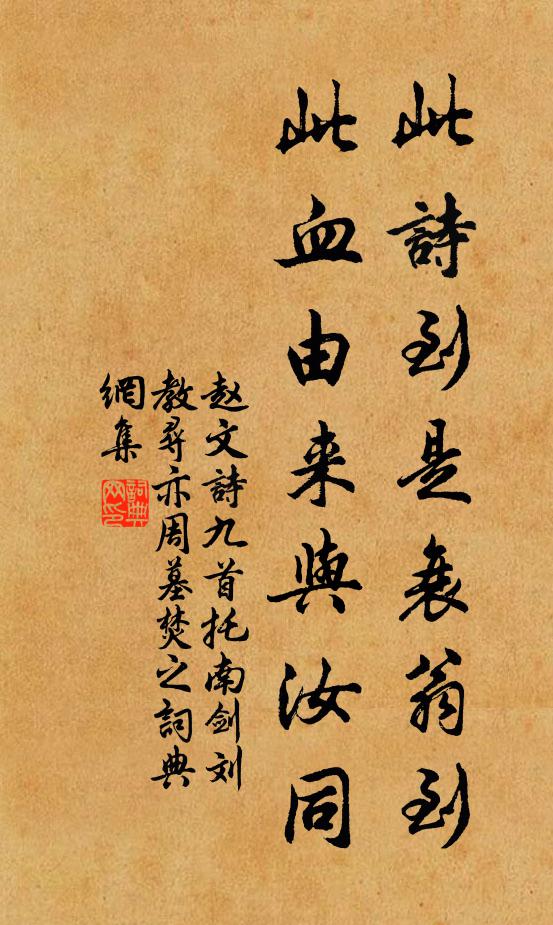 此詩到是衰翁到
此血由来與汝同
赵文詩九首托南剑刘
教尋亦周墓焚之詞典
網集
詞典
网印